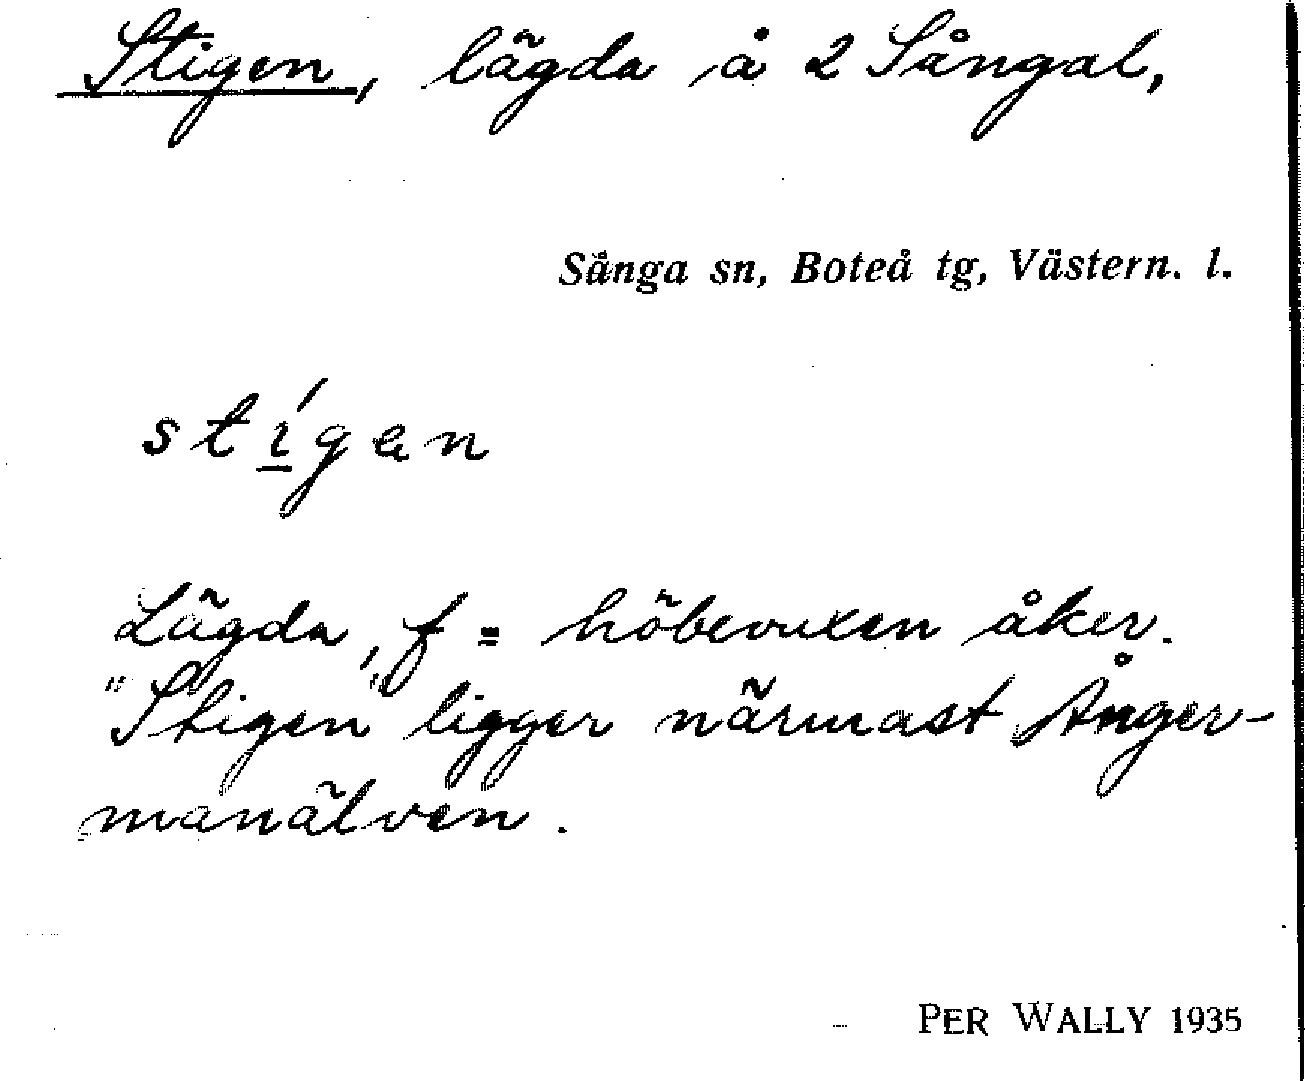 Stigen, lägda å 2 Sångal,
Sånga sn, Boteå tg, Västern. l.
stígen
Lägda, f = höbevuxen åker.
"Stigen" ligger närmast Ånger-
manälven.
PER WALLY 1935